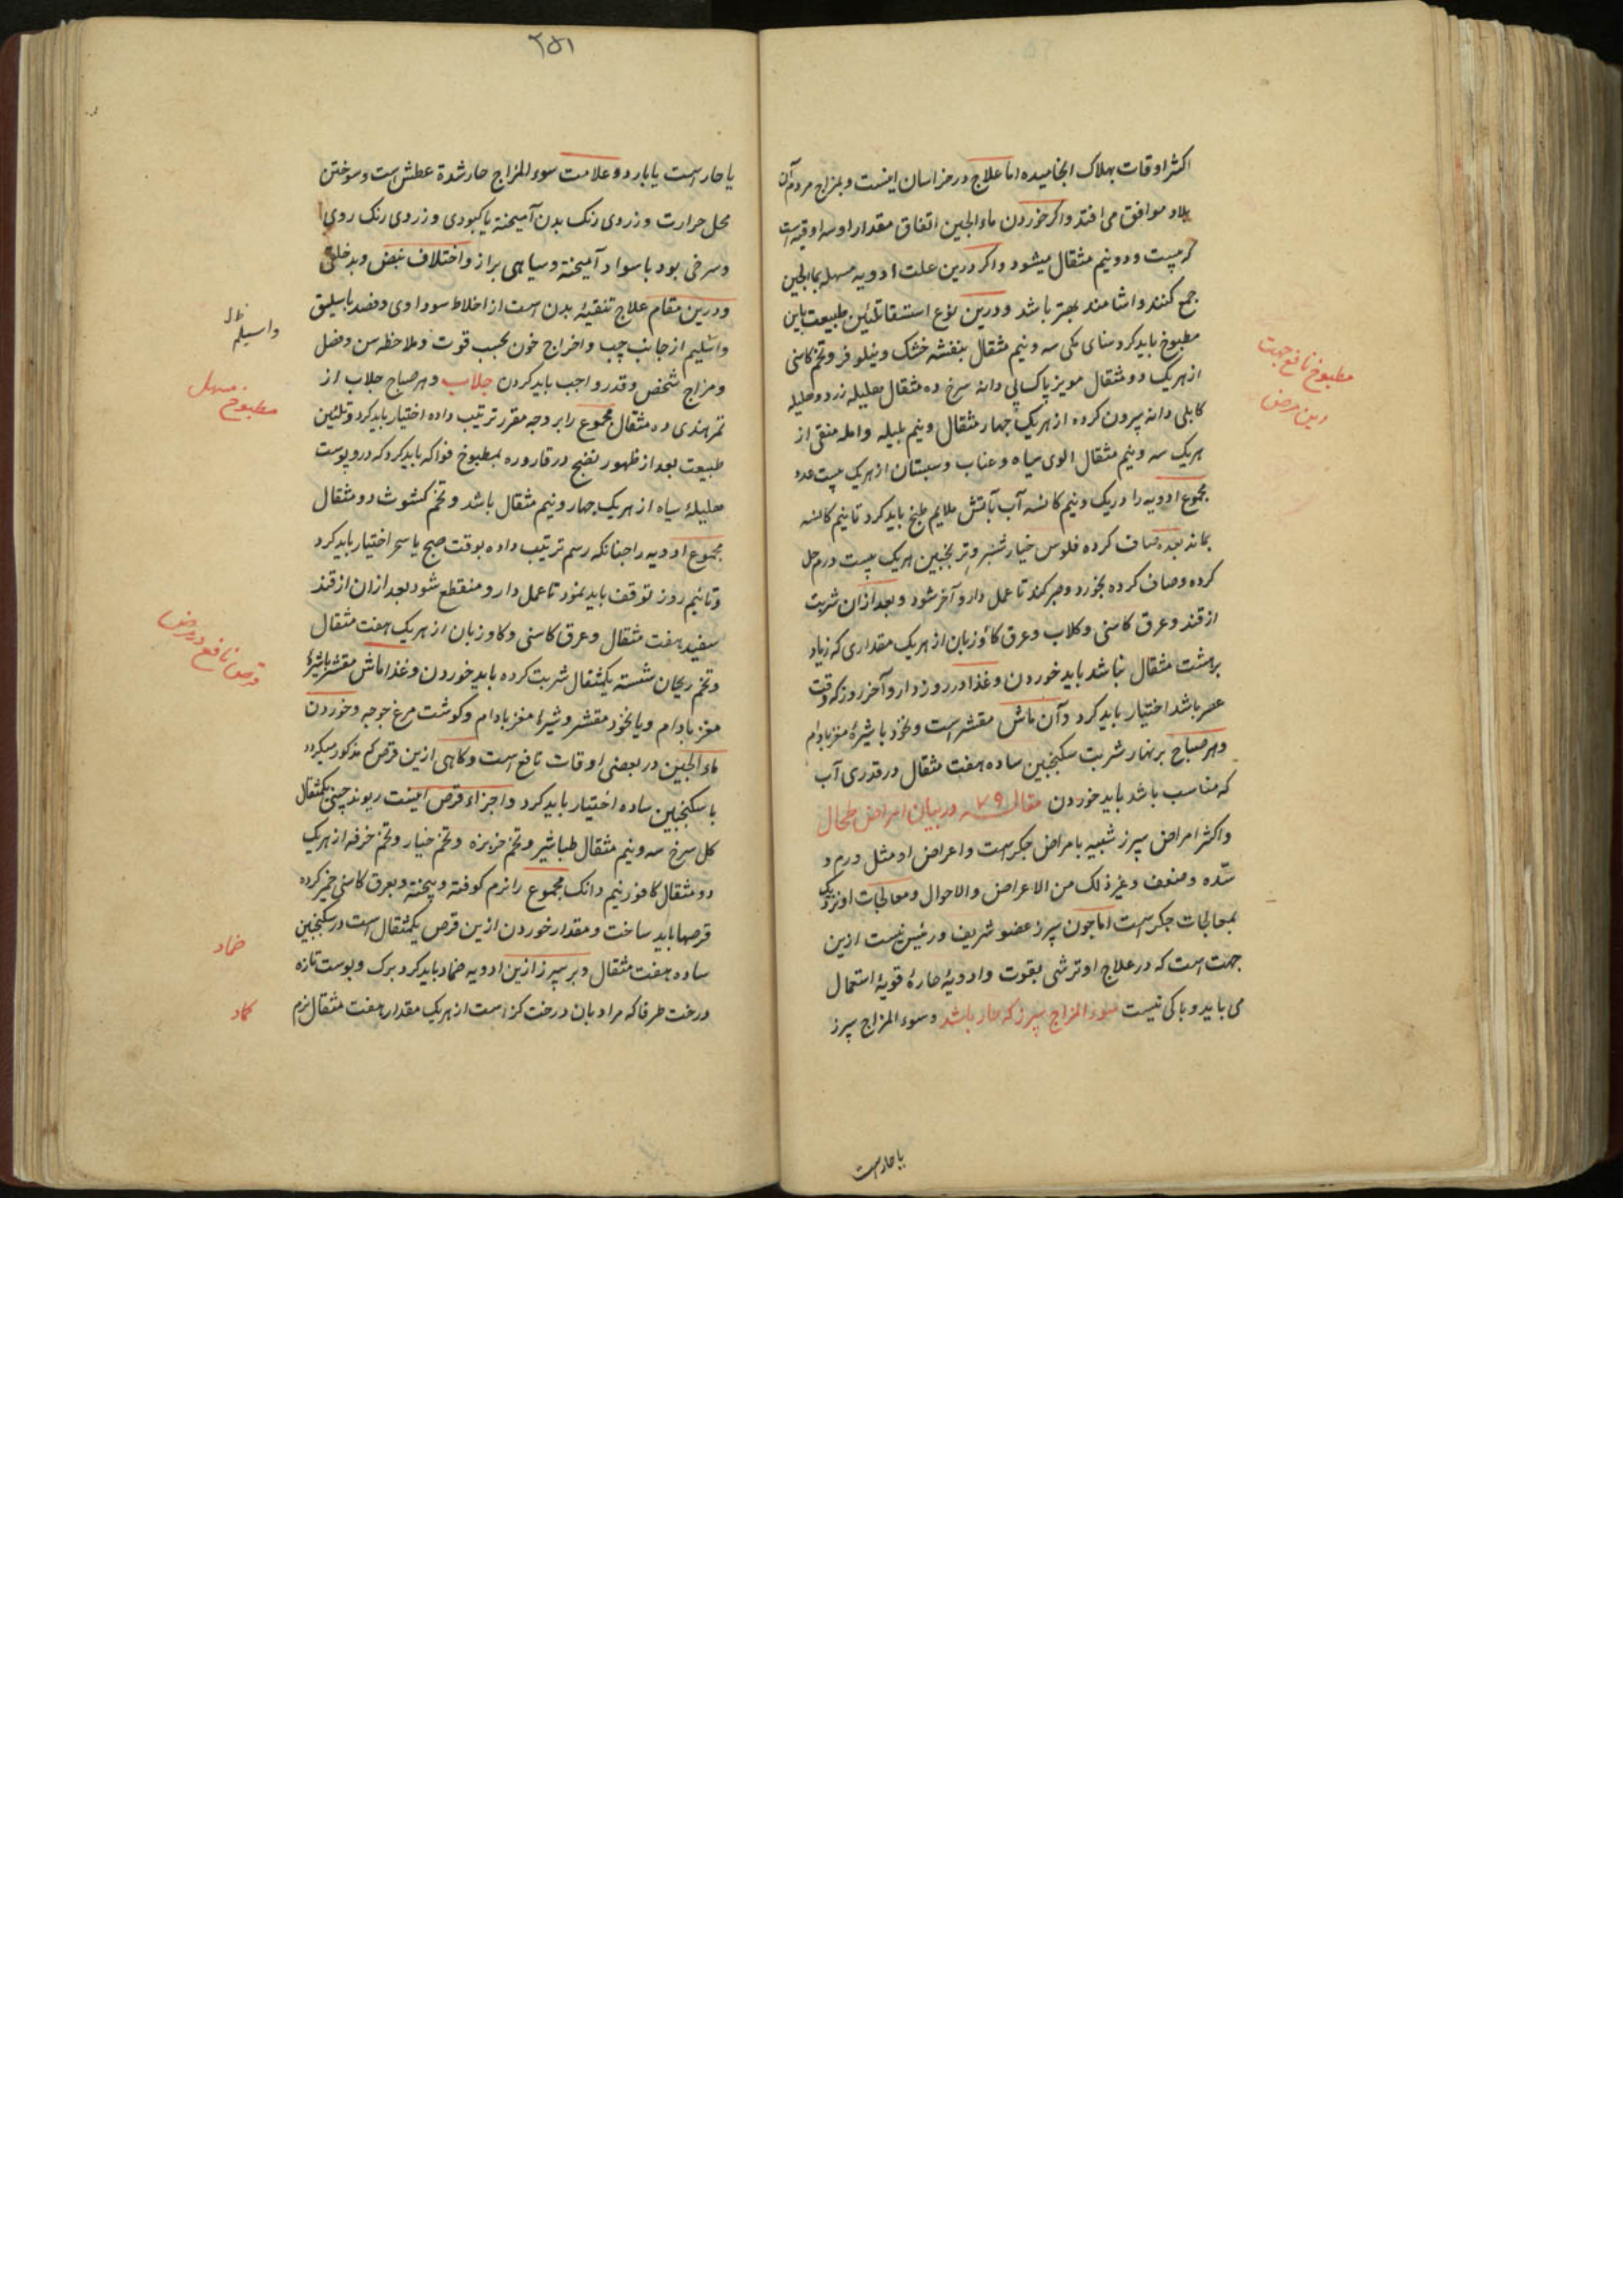 اکثر اوقات بهلاک انجامیده اما علاج در خراسان اینست و بمزاج مردم آن
بلاد موافق می افتد و اکر خوردن ماء الجبن اتفاق مقدار او سه اوقیه است
که بیست و دو نیم مثقال میشود و اکر درین علت ادویه مسهله بماالجبن
جمع کنند و اشامند بهتر باشد و درین نوع استسقا تلئین طبیعت باین
مطبوخ باید کرد سنای مکی سه و نیم مثقال بنفشه خشک و نیلوفر و تخم کاسنی
از هریک دو مثقال مویز پاک بی دانه سرخ ده مثقال هلیله زرد و هلیله
کابلی دانه بیرون کرده از هریک جهار مثقال و نیم بلیله و امله منقی از
هریک سه و نیم مثقال الوی سیاه و عناب و سبستان از هریک بیست عدد
مجموع ادویه را در یک و نیم کاسه آب بآتش ملایم طبخ باید کرد تا نیم کاسه
بماند بعده صاف کرده فلوس خیار شنبر و ترنجبین هریک بیست درم حل
کرده و صاف کرده بخورد و صبر کند تا عمل دارو آخر شود و بعد ازان شربت
از قند و عرق کاسنی و کلاب و عرق کاوزبان از هریک مقداری که زیاد
بر هشت مثقال نباشد باید خوردن و غذا در روز دارو آخر روز که وقت
عصر باشد اختیار باید کرد و آن ماش مقشر است و نخود با شیرهٔ مغز بادام
و هر صباح بر نهار شربت سکنجبین ساده هفت مثقال در قدری آب
که مناسب باشد باید خوردن مقاله ٧٩ در بیان امراض طحال
و اکثر امراض سپرز شبیه بامراض جکر است و اعراض او مثل ورم و
سدّه و ضعف و غیر ذلک من الاعراض و الاحوال و معالجات او نزدیک
بمعالجات جکر است اما جون سپرز عضو شریف و رئیس نیست ازین
جهت است که در علاج او ترشی بقوت و ادویهٔ حارهٔ قویهٔ استعمال
می باید و باکی نیست سوء المزاج سپرز که حار باشد و سوء المزاج سپرز
یا حار است
مطبوخ نافع جهت
این مرض
٢٥١
یا حار است یا بارد و علامت سوء المزاج حار شدة عطش است و سوختن
محل حرارت و زردی رنک بدن آمیخته با کبودی و زردی رنک روی
و سرخی بود با سواد آمیخته و سیاهی براز و اختلاف نبض و بدخلقی
و درین مقام علاج تنقیهٔ بدن است از اخلاط سوداوی و فصد باسلیق
و اسلیم از جانب چپ و اخراج خون بحسب قوت و ملاحظه سن و فصل
و مزاج شخص و قدر واجب باید کردن جلاب و هر صباح جلاب از
تمر هندی ده مثقال مجموع را بر وجه مقرر ترتیب داده اختیار باید کرد و تلئین
طبیعت بعد از ظهور نضج در قاروره بمطبوخ فواکه باید کرد که درو پوست
هلیلهٔ سیاه از هریک جهار و نیم مثقال باشد و تخم کشوث دو مثقال
مجموع ادویه را جنانکه رسم ترتیب داده بوقت صبح یا سحر اختیار باید کرد
و تا نیم روز توقف باید نمود تا عمل دارو منقطع شود بعد ازان از قند
سفید هفت مثقال و عرق کاسنی و کاوزبان از هریک هفت مثقال
و تخم ریحان شسته یکمثقال شربت کرده باید خوردن و غذا ماش مقشر با شیرهٔ
مغز بادام و یا نخود مقشر و شیرهٔ مغز بادام و کوشت مرغ جوجه و خوردن
ماء الجبن در بعضی اوقات نافع است و کاهی ازین قرص که مذکور میکردد
با سکنجبین ساده اختیار باید کرد و اجزاء قرص اینست ریوند چینی یکمثقال
کل سرخ سه و نیم مثقال طباشیر و تخم خربزه و تخم خیار و تخم خرفه از هریک
دو مثقال کافور نیم دانک مجموع را نرم کوفته و پیخته و بعرق کاسنی خمیر کرده
قرصها باید ساخت و مقدار خوردن ازین قرص یکمثقال است در سکنجبین
ساده هفت مثقال و بر سپرز ازین ادویه ضماد باید کرد برک و پوست تازه
درخت طرفا که مراد بان درخت کز است از هریک مقدار هفت مثقال نرم
واسیلم
مطبوخ مسهل
قرص نافع درین مرض
ضماد
کماد